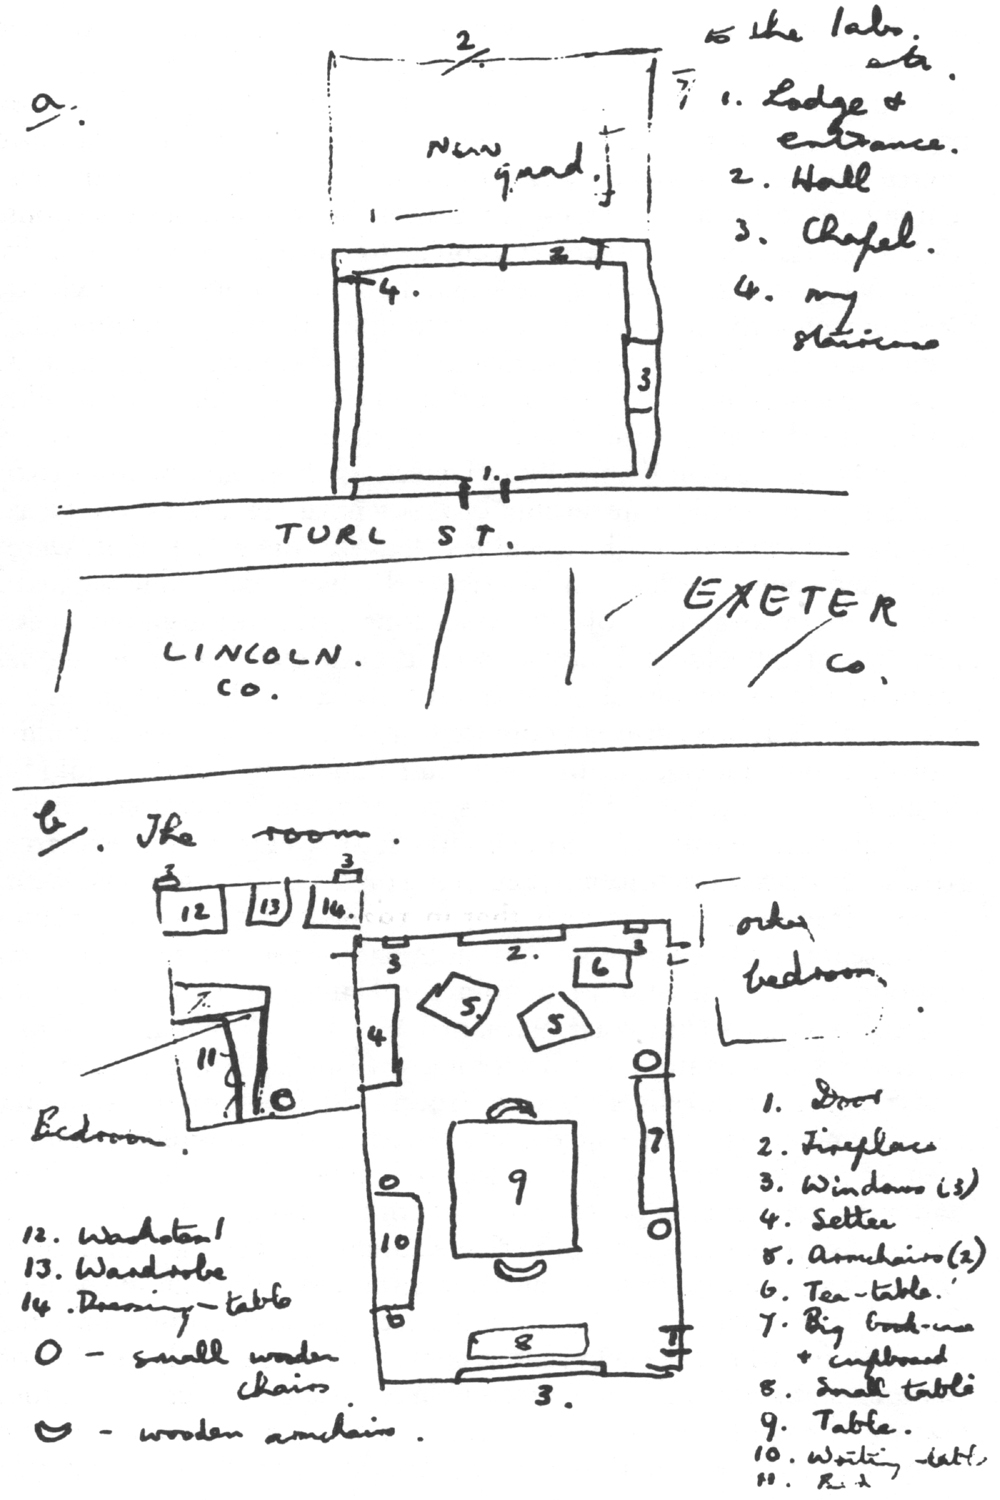 a.
2.
to the labs.
etc.
1. Lodge &
entrance.
2. Hall
3. Chapel.
4. my
staircase
New
quad.
1
2
4.
3
1.
TURL ST.
LINCOLN.
CO.
EXETER
CO.
b. The room.
3
3
12
13
14.
3
2.
3
6
5.
5
4
other
bedroom
11
7
9
10
8
1
3.
Bedroom.
12. Washstand
13. Wardrobe
14. Dressing-table
O - small wooden
chairs
- wooden armchairs.
1. Door
2. Fireplace
3. Windows (3)
4. Settee
5. Armchairs (2)
6. Tea-table.
7. Big book-case
+ cupboard
8. Small table
9. Table.
10. Writing-table
11. Bed